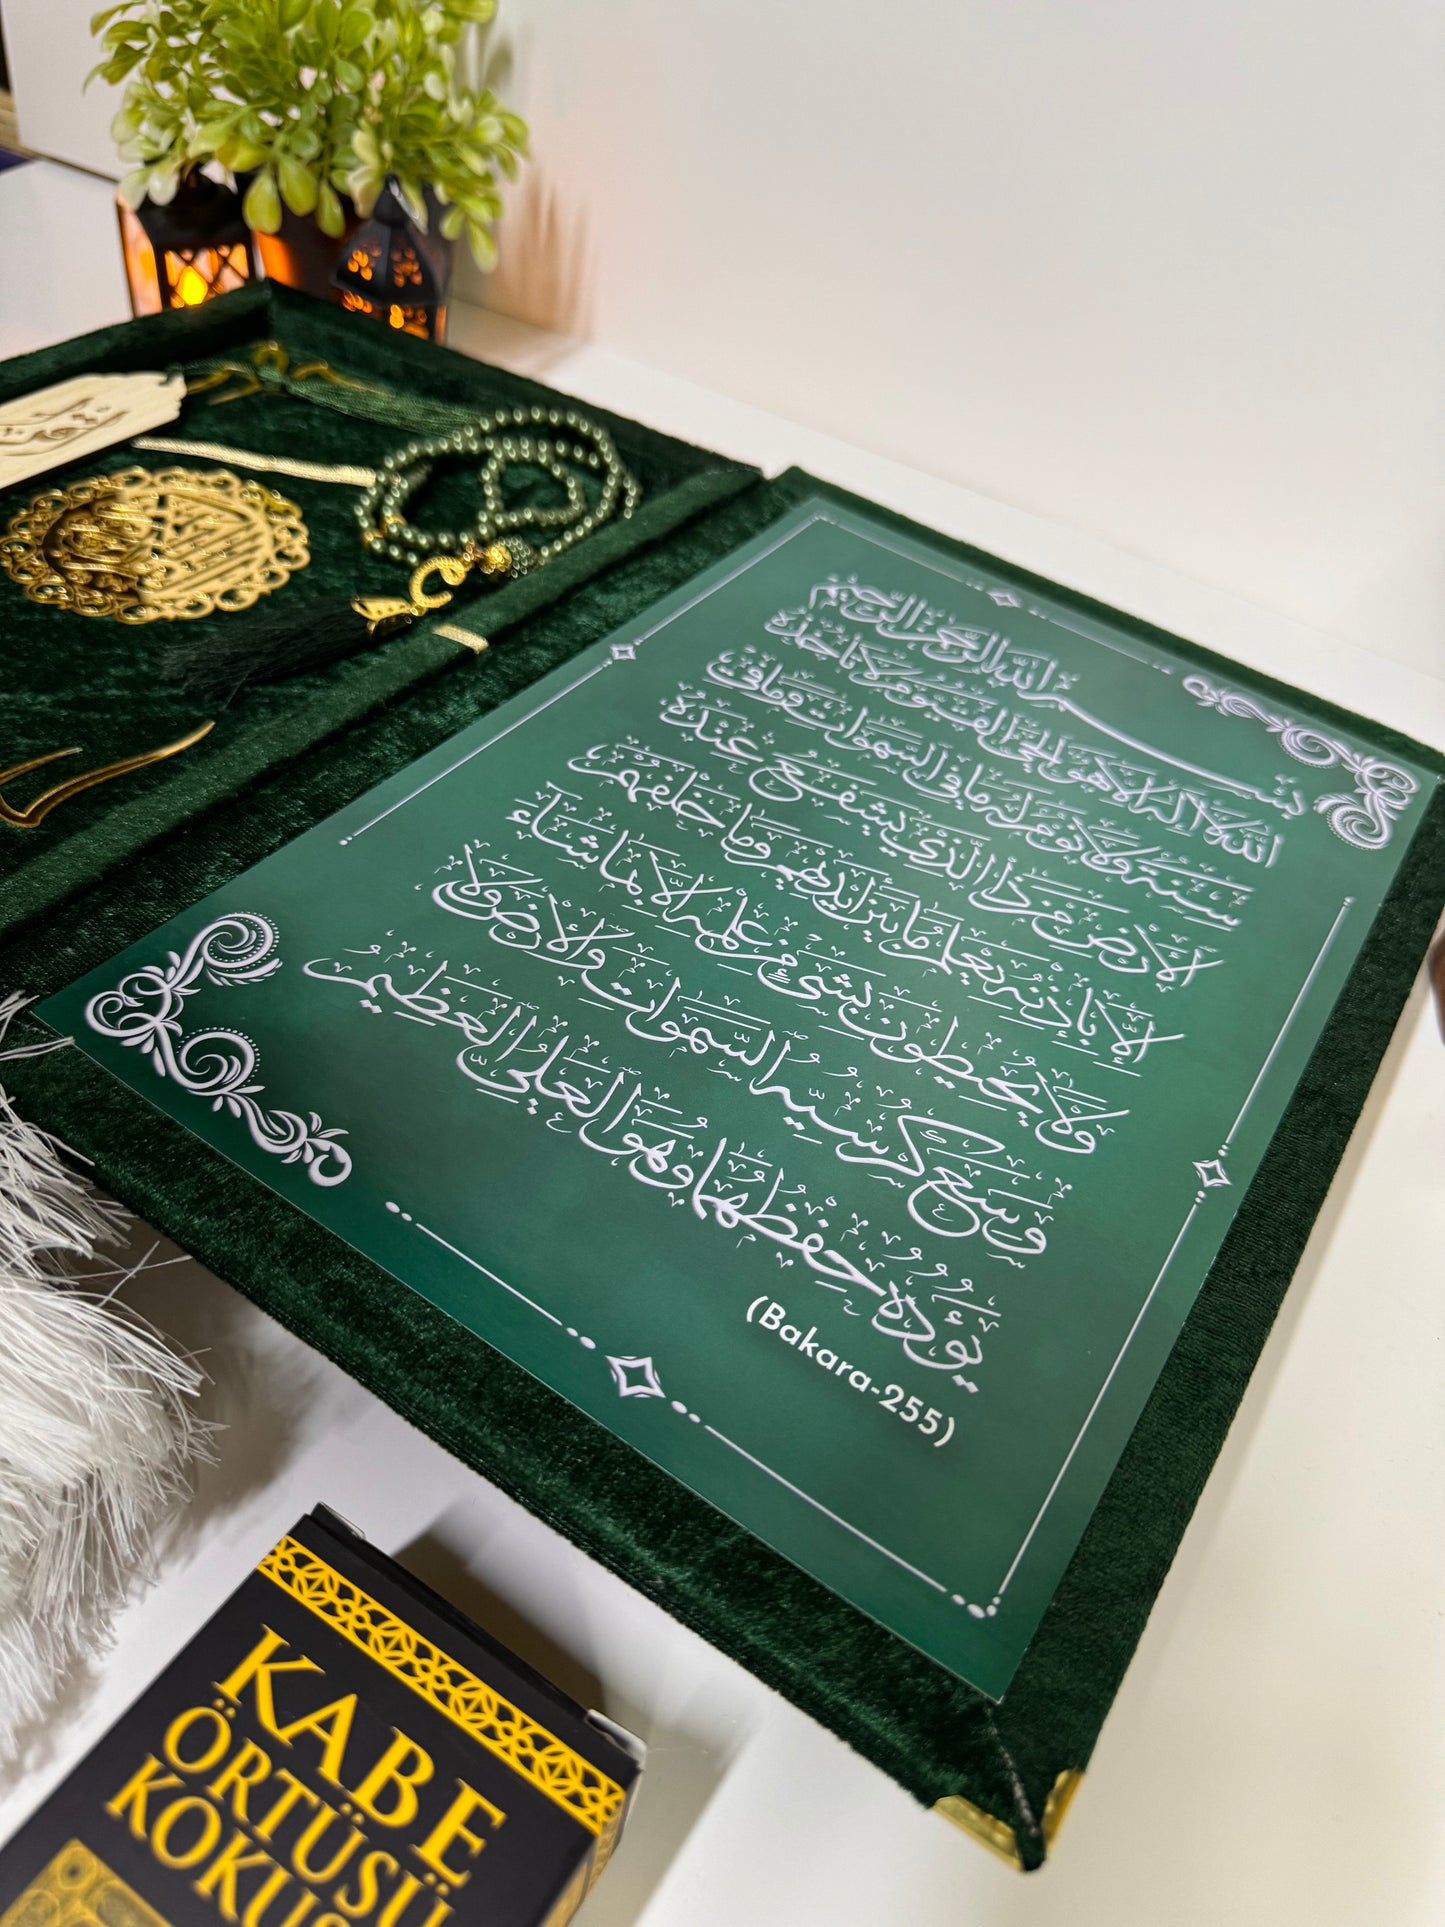 بِسْمِ اللّٰهِ الرَّحْمٰنِ الرَّحِيمِ
اَللّٰهُ لَا اِلٰهَ اِلَّا هُوَ الْحَىُّ الْقَيُّومُ لَا تَاْخُذُهُ
سِنَةٌ وَلَا نَوْمٌ لَهُ مَا فِى السَّمٰوَاتِ وَمَا فِى
الْاَرْضِ مَنْ ذَا الَّذٖى يَشْفَعُ عِنْدَهُ
اِلَّا بِاِذْنِهٖ يَعْلَمُ مَا بَيْنَ اَيْدٖيهِمْ وَمَا خَلْفَهُمْ
وَلَا يُحٖيطُونَ بِشَىْءٍ مِنْ عِلْمِهٖ اِلَّا بِمَا شَاءَ
وَسِعَ كُرْسِيُّهُ السَّمٰوَاتِ وَالْاَرْضَ وَلَا
يَؤُدُهُ حِفْظُهُمَا وَهُوَ الْعَلِىُّ الْعَظٖيمُ
(Bakara-255)
KABE
ÖRTÜSÜ
KOKUS